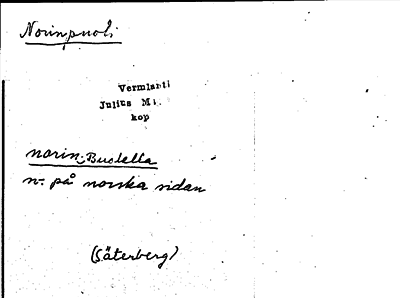 Norinpuoli
Vermlanti
Julius M.
kop
norin-Bustella
n. på norska sidan
(Säterberg)